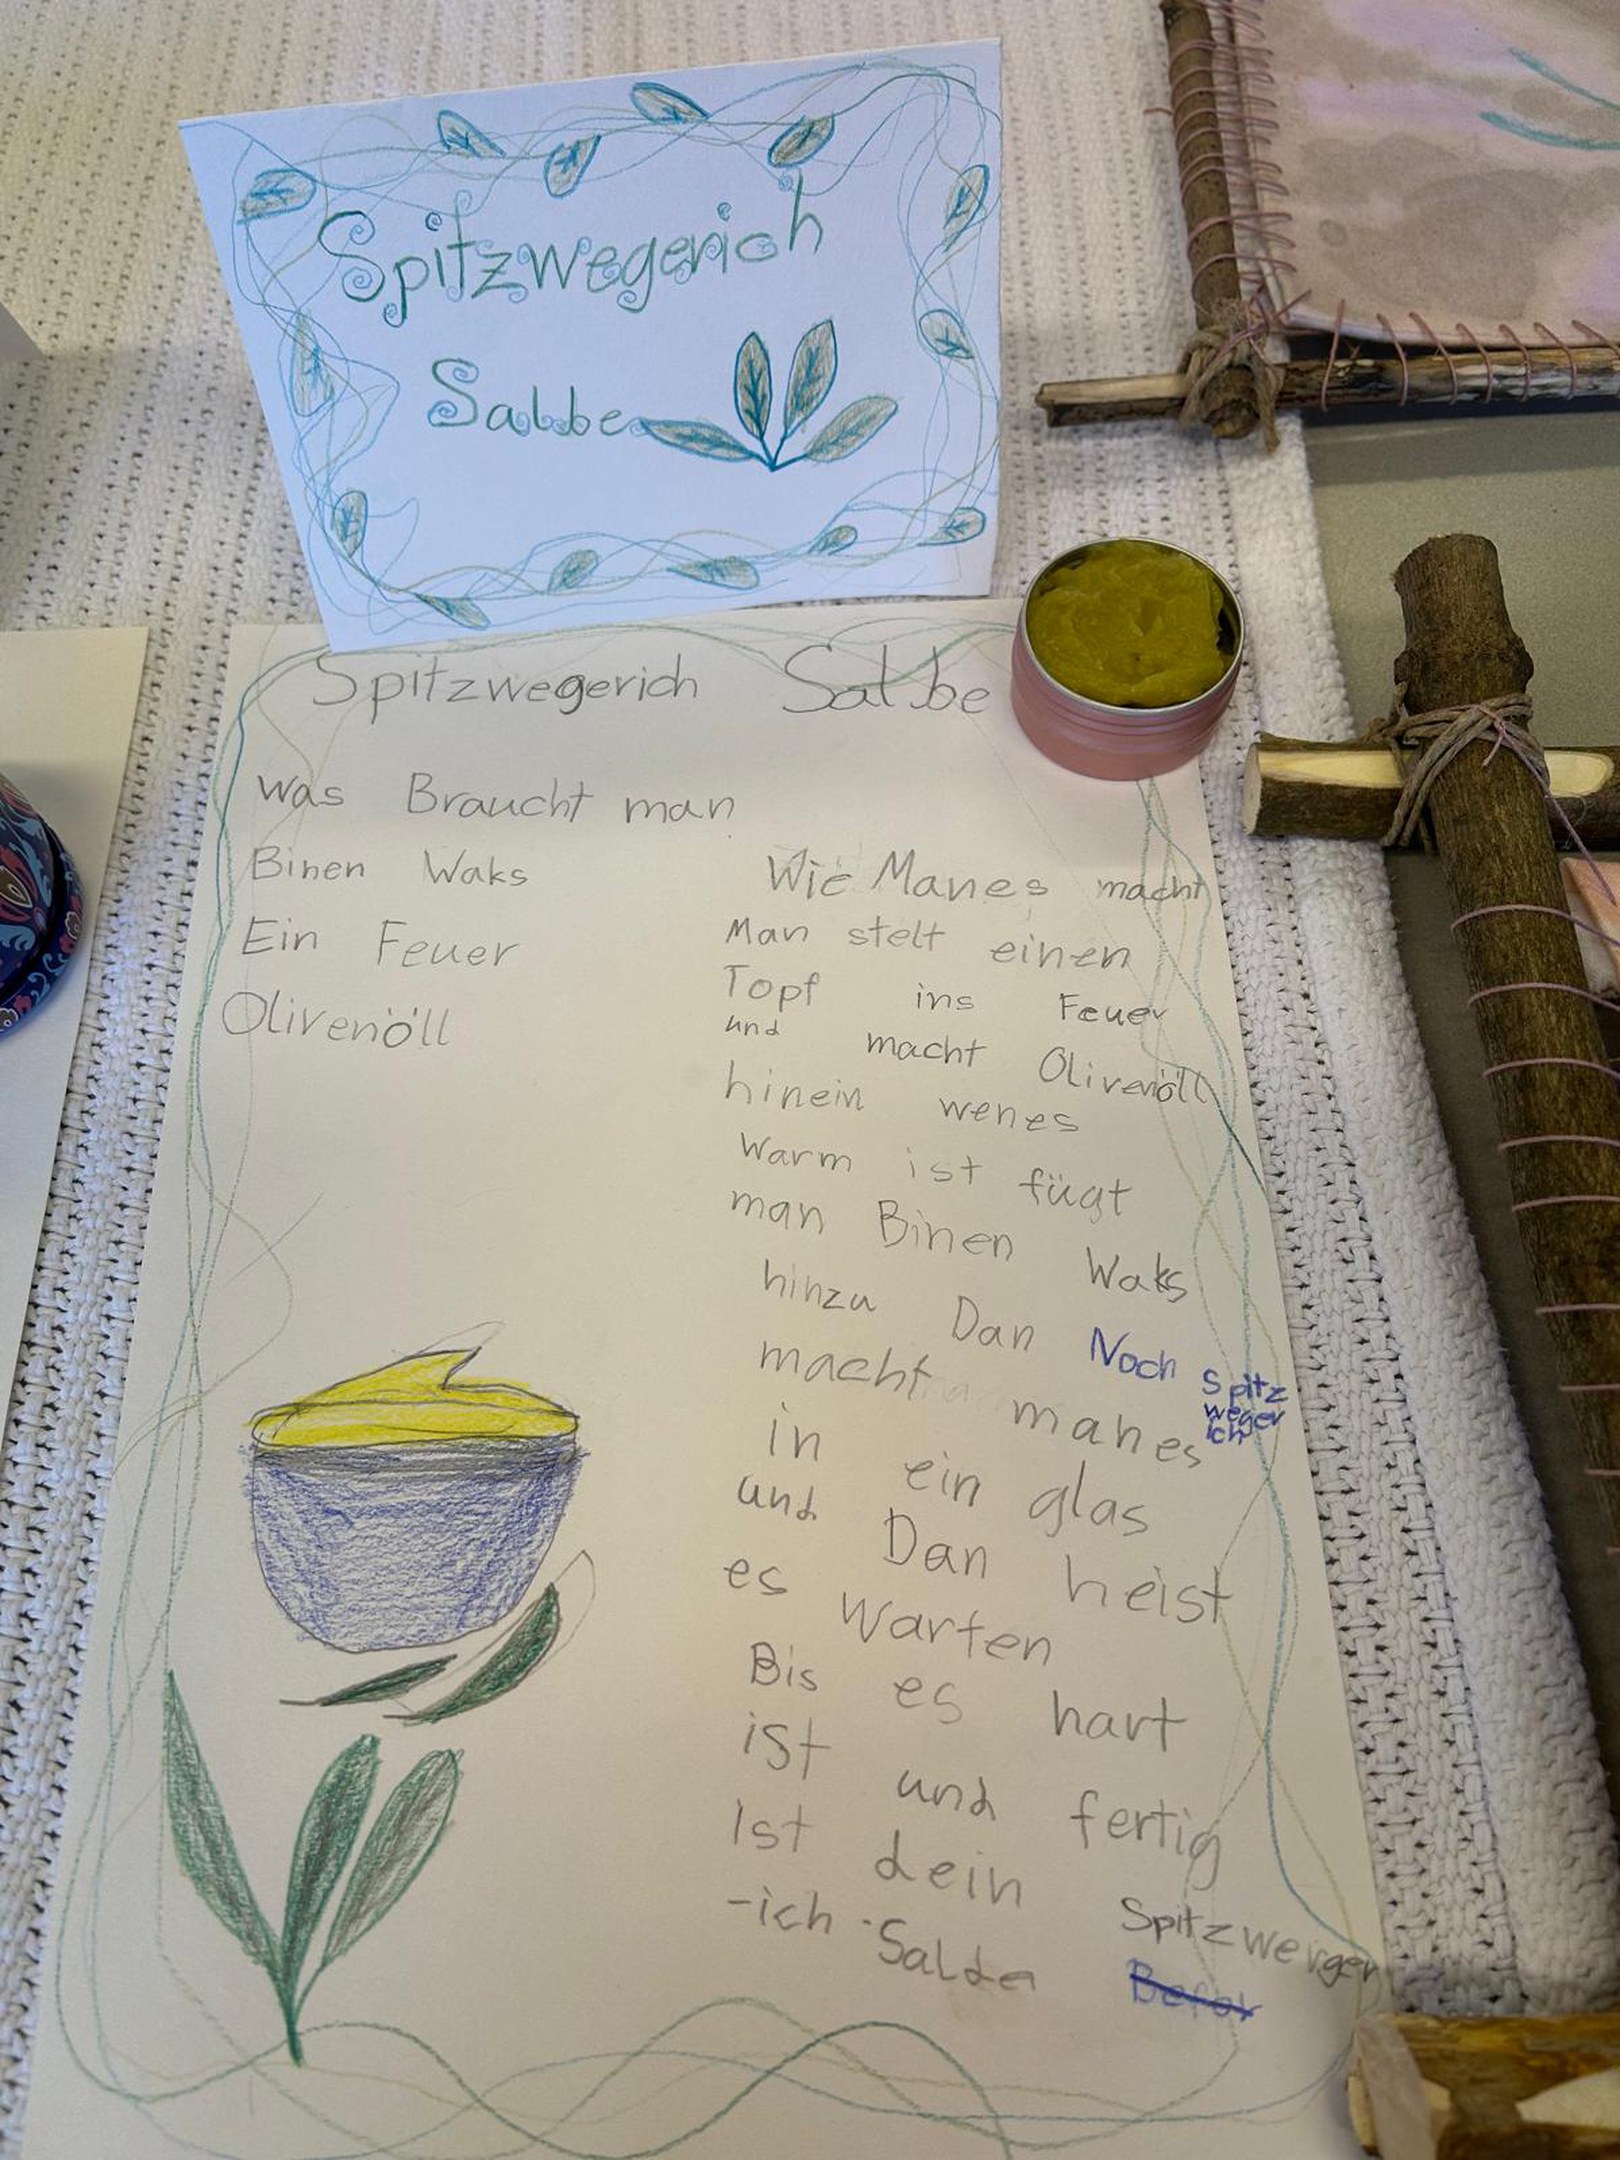 Spitzwegerich
Salbe
Spitzwegerich Salbe
was Braucht man
Binen Waks
Ein Feuer
Olivenöll
Wie Manes macht
Man stelt einen
Topf ins Feuer
und macht Olivenöll
hinein wenes
warm ist fügt
man Binen Waks
hinzu Dan Noch Spitz
weger
ich
macht manes
in ein glas
und Dan heist
es warten
Bis es hart
ist und fertig
Ist dein Spitzwerger
-ich Salbe